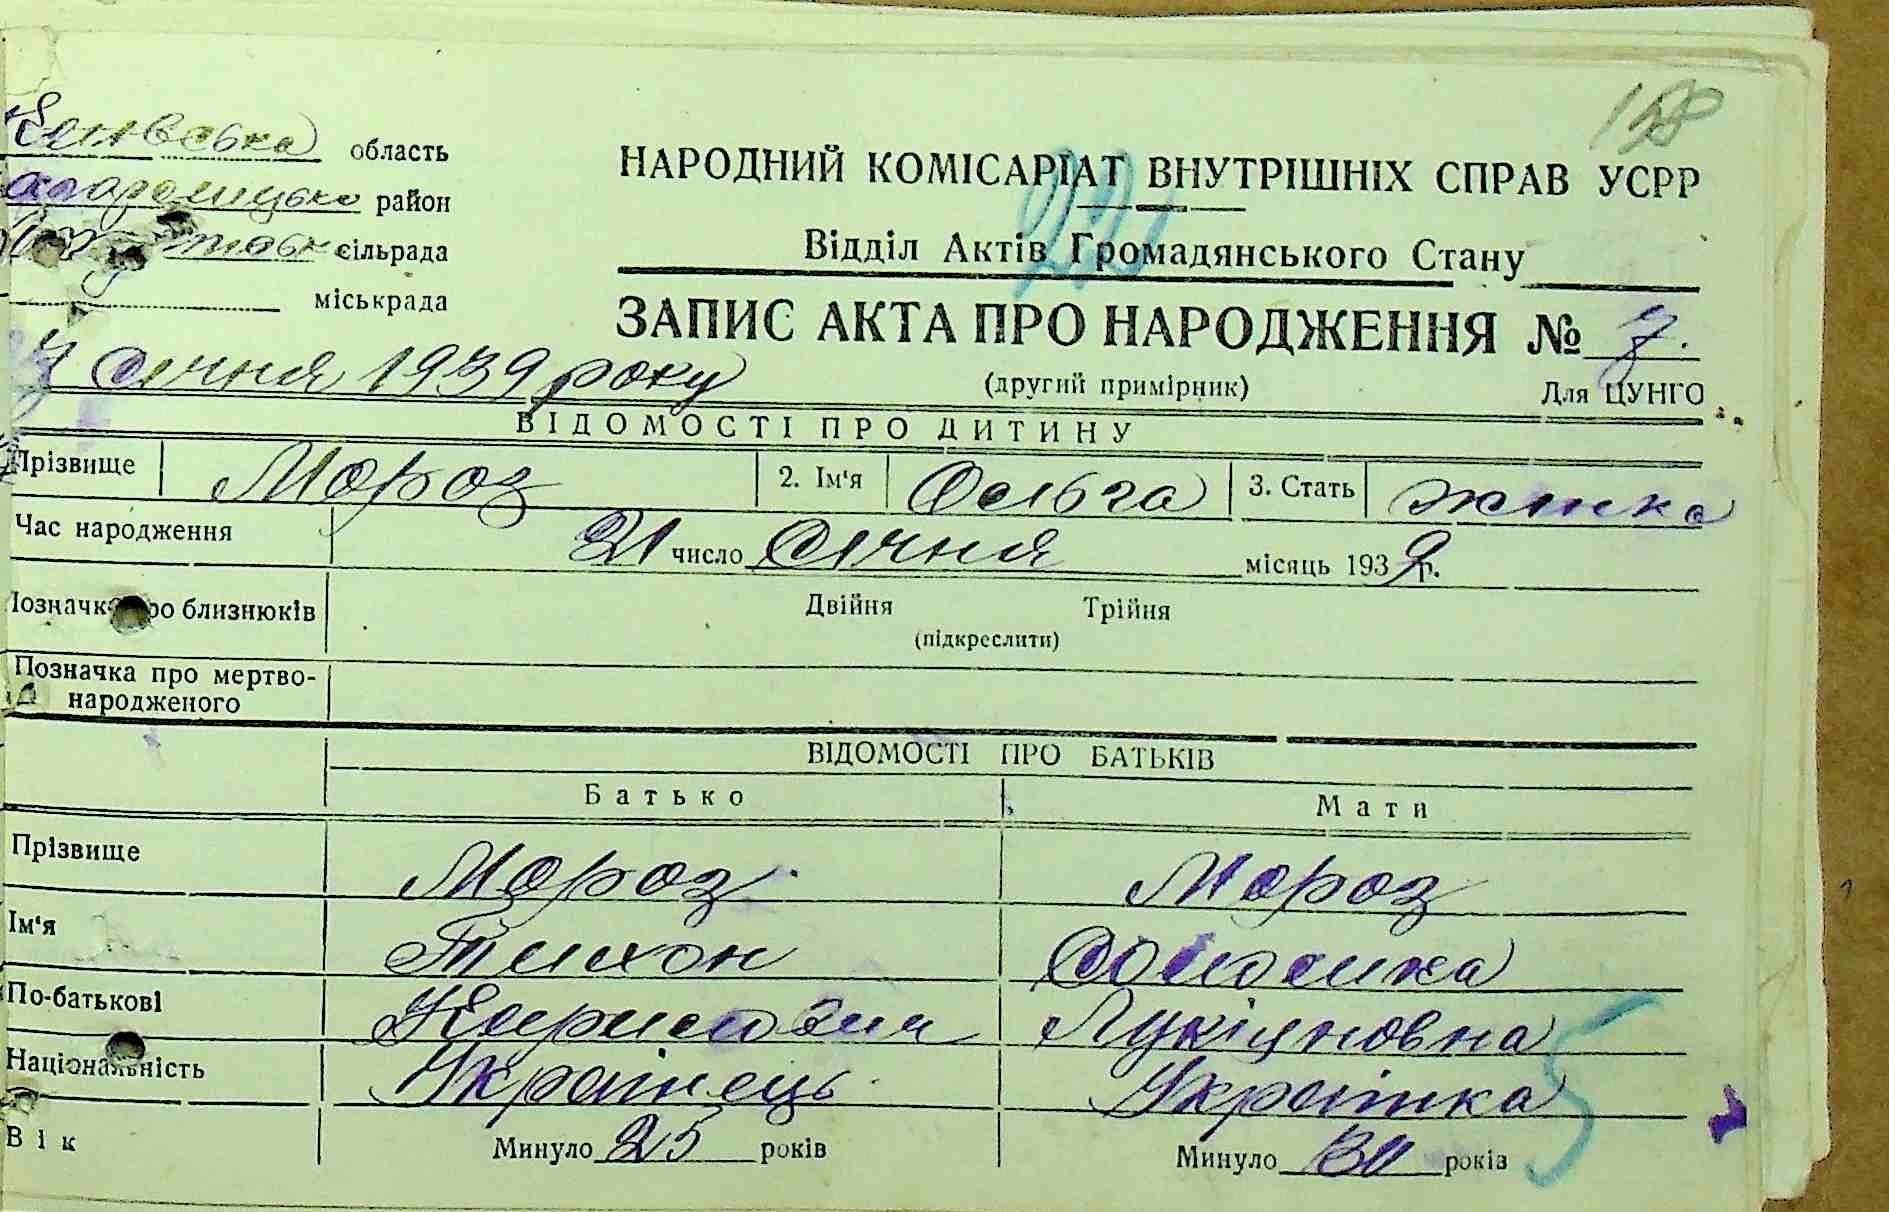 158
Київська область
район
сільрада
міськрада
НАРОДНИЙ КОМІСАРІАТ ВНУТРІШНІХ СПРАВ УСРР
Відділ Актів Громадянського Стану
ЗАПИС АКТА ПРО НАРОДЖЕННЯ № 7.
січня 1939 року (другий примірник) Для ЦУНГО
ВІДОМОСТІ ПРО ДИТИНУ
Прізвище Мороз 2. Ім'я Ольга 3. Стать жінка
Час народження 21 число Січня місяць 1939 р.
Позначка про близнюків Двійня Трійня
(підкреслити)
Позначка про мертво-
народженого
ВІДОМОСТІ ПРО БАТЬКІВ
Батько Мати
Прізвище Мороз Мороз
Ім'я Тихон Соломия
По-батькові Кирилович Лукіяновна
Національність Українець Українка
Вік Минуло 25 років Минуло років